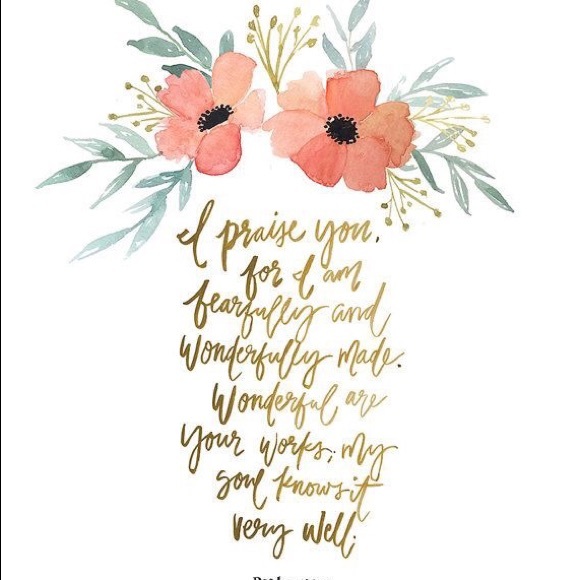 I praise you,
for I am
fearfully and
wonderfully made.
Wonderful are
your works; my
soul knows it
very well.